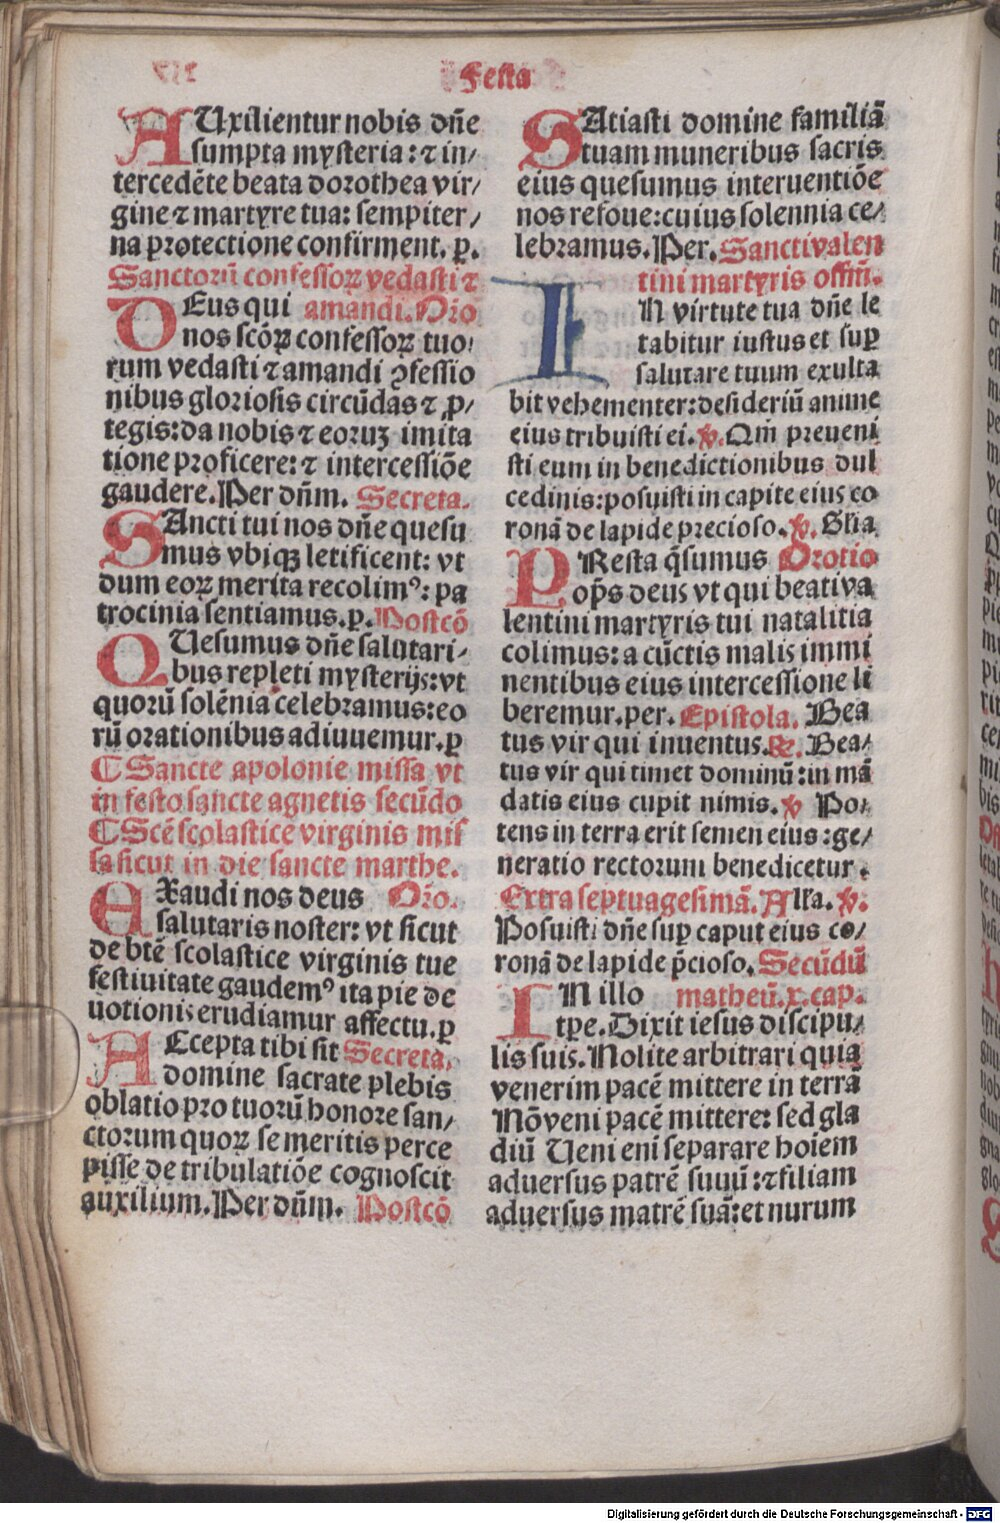 Festa
AUxilientur nobis dn̄e
sumpta mysteria: ⁊ in/
tercedēte beata dorothea vir/
gine ⁊ martyre tua: sempiter/
na protectione confirment. p.
Sanctorū confessoꝝ vedasti ⁊
DEus qui amandi. Oro
nos scōꝝ confessoꝝ tuo/
rum vedasti ⁊ amandi ꝯfessio
nibus gloriosis circūdas ⁊ ꝓ/
tegis: da nobis ⁊ eoruʒ imita
tione proficere: ⁊ intercessiōe
gaudere. Per dn̄m. Secreta.
SAncti tui nos dn̄e quesu
mus vbiqʒ letificent: vt
dum eoꝝ merita recolimꝰ: pa
trocinia sentiamus. p. Postcō
QUesumus dn̄e salutari/
bus repleti mysterijs: vt
quorū solēnia celebramus: eo
rū orationibus adiuuemur. p
¶ Sancte apolonie missa vt
in festo sancte agnetis secūdo
¶ Scē scolastice virginis mis
sa sicut in die sancte marthe.
EXaudi nos deus Oro.
salutaris noster: vt sicut
de btē scolastice virginis tue
festiuitate gaudemꝰ ita pie de
uotionis erudiamur affectu. p
AEcepta tibi sit Secreta.
domine sacrate plebis
oblatio pro tuorū honore san/
ctorum quoꝝ se meritis perce
pisse de tribulatiōe cognoscit
auxilium. Per dn̄m. Postcō
SAtiasti domine familiā
tuam muneribus sacris
eius quesumus interuentiōe
nos refoue: cuius solennia ce/
lebramus. Per. Sancti valen
tini martyris offm̄.
IN virtute tua dn̄e le
tabitur iustus et suꝑ
salutare tuum exulta
bit vehementer: desideriū anime
eius tribuisti ei. ℣. Qm̄ preueni
sti eum in benedictionibus dul
cedinis: posuisti in capite eius co
ronā de lapide precioso. ℣. Glia
PResta q̄sumus Orotio
op̄s deus vt qui beati va
lentini martyris tui natalitia
colimus: a cūctis malis immi
nentibus eius intercessione li
beremur. per. Epistola. Bea
tus vir qui inuentus. ℟. Bea/
tus vir qui timet dominū: in mā
datis eius cupit nimis. ℣ Po/
tens in terra erit semen eius: ge/
neratio rectorum benedicetur.
Extra septuagesimā. Alla. ℣.
Posuisti dn̄e suꝑ caput eius co/
ronā de lapide p̄cioso. Secūdū
IN illo matheū. x. cap.
tpe. Dixit iesus discipu/
lis suis. Nolite arbitrari quia
venerim pacē mittere in terrā
Nō veni pacē mittere: sed gla
diū Ueni eni separare hoiem
aduersus patrē suuū: ⁊ filiam
aduersus matrē suā: et nurum
Digitalisierung gefördert durch die Deutsche Forschungsgemeinschaft - DFG